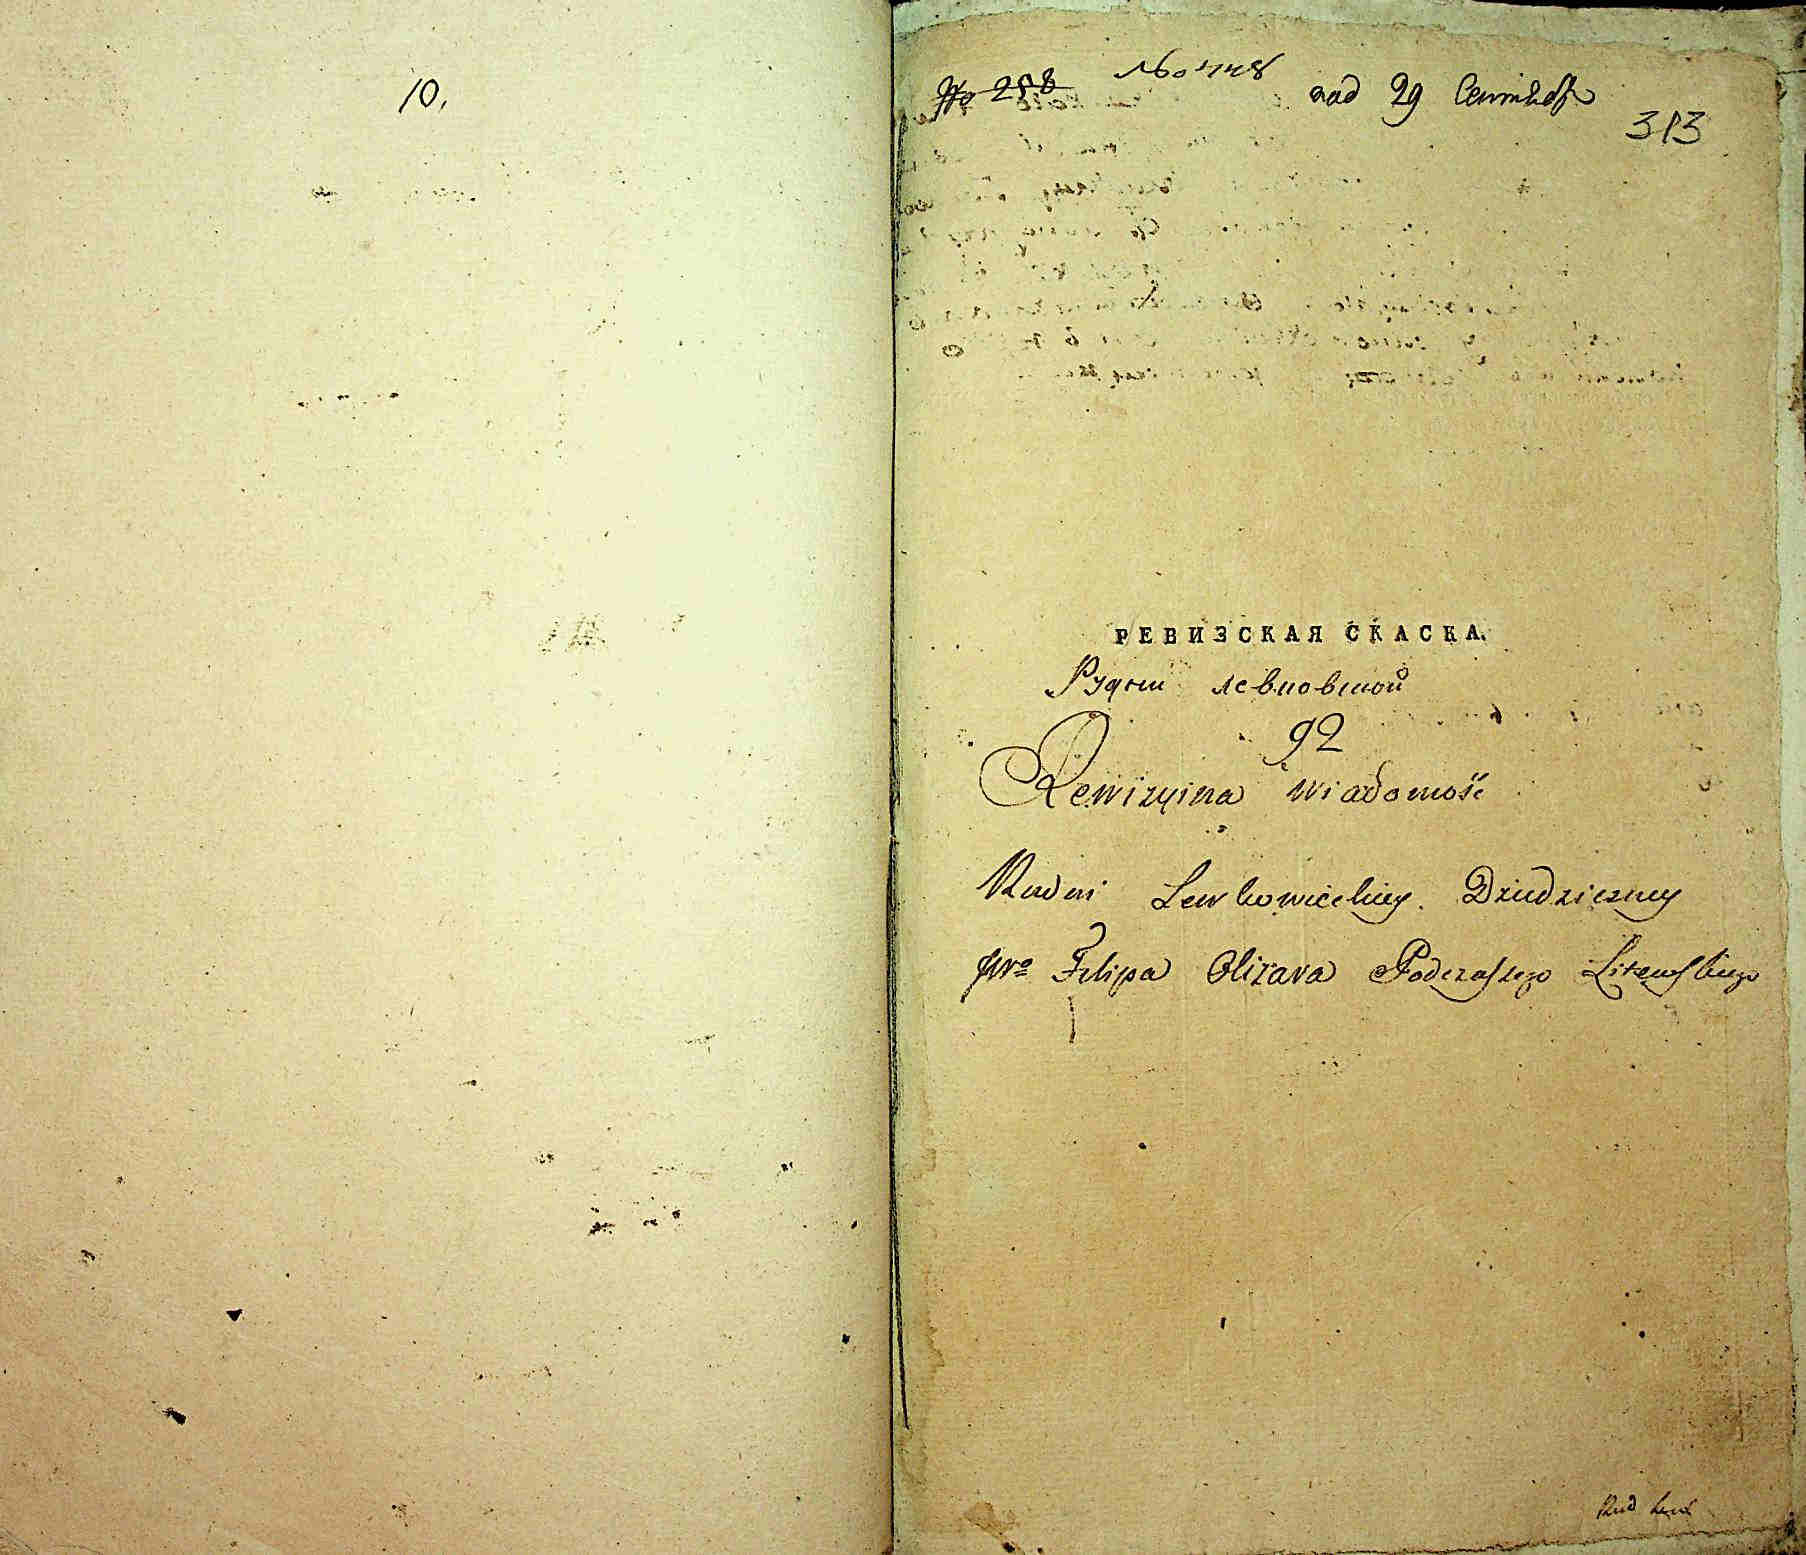 10.
No 258 No 448 под 29 Сентября
313
РЕВИЗСКАЯ СКАСКА.
Рудни левковской
92
Rewizyina Wiadomość
Rudni Lewkowickiey Dziedziczney
JWo Filipa Olizara Podczaszego Litewskiego
Rud Lewk